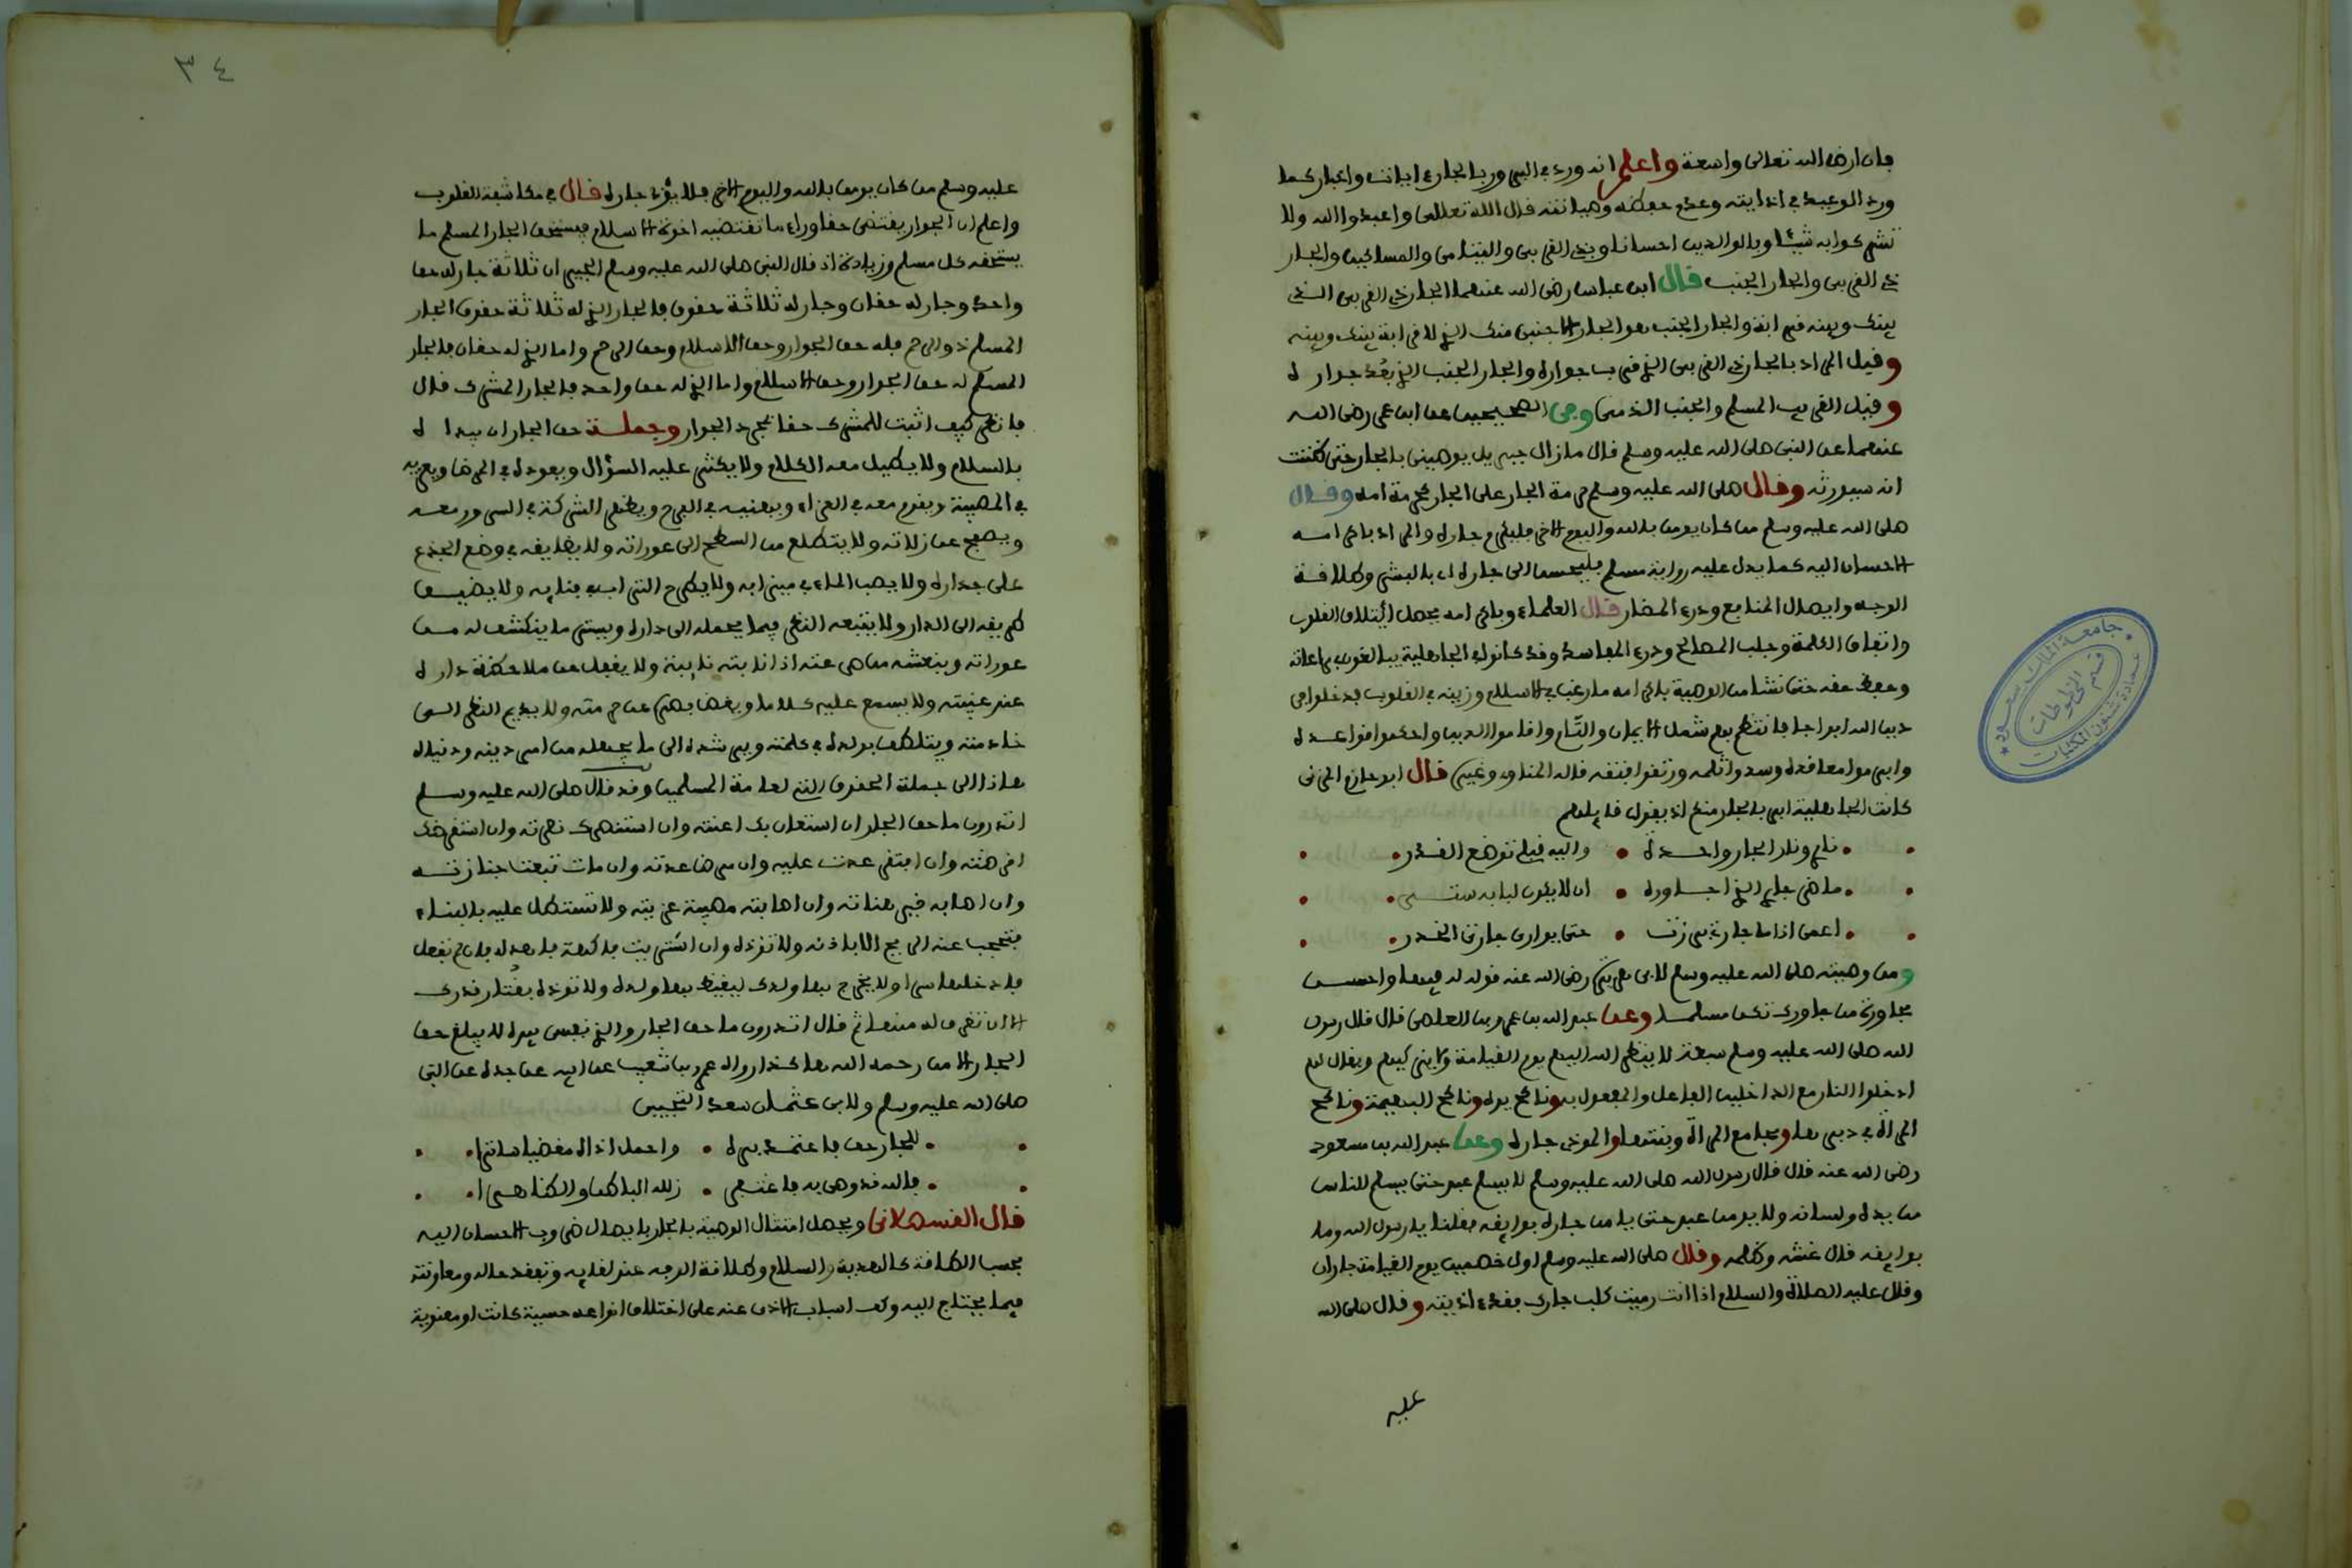 فان ارض الله تعالى واسعة واعلم انه ورد في البرور بالجار ءايات واخبار كما
ورد الوعيد في اذايته وعدم حفظه وصيانته قال الله تعالى واعبدوا الله ولا
تشركوا به شيئا وبالوالدين احسانا وبذي القربى واليتامى والمساكين والجار
ذي القربى والجار الجنب قال ابن عباس رضي الله عنهما الجار ذي القربى الذي
بينك وبينه قرابة والجار الجنب هو الجار الاجنبي منك الذي لا قرابة بينك وبينه
وقيل المراد بالجار ذي القربى الذي قرب جواره والجار الجنب الذي بعُد جواره
وقيل القريب المسلم والجنب الذمي وفي الصحيحين عن ابن عمر رضي الله
عنهما عن النبي صلى الله عليه وسلم قال ما زال جبريل يوصيني بالجار حتى ظننت
انه سيورثه وقال صلى الله عليه وسلم حرمة الجار على الجار كحرمة امه وقال
صلى الله عليه وسلم من كان يومن بالله واليوم الاخر فليكرم جاره والمراد باكرامه
الاحسان اليه كما يدل عليه رواية مسلم فليحسن الى جاره اي بالبشر وطلاقة
الوجه وايصال المنافع ودرء المضار قال العلماء وباكرامه يحصل ائتلاف القلوب
واتفاق الكلمة وجلب المصالح ودرء المفاسد وقد كانوا في الجاهلية يبالغون في مراعاته
وحفظ حقه حتى نشا من الوصية باكرامه ما رغب في الاسلام وزينه في القلوب فدخلوا في
دين الله افواجا فانتظم بهم شمل الايمان والتأم واقاموا الدين واحكموا قواعده
وابرموا معاقده وسدوا ثلمه ورتقوا فتقه قاله المناوي وغيره قال ابو حازم المزني
كانت الجاهلية ابر بالجار منكم اذ يقول قائلهم
ناري ونار الجار واحدة • واليه قبلي توضع القدر
ما ضر جاري الذي اجاوره • ان لا يكون لبابه ستر
اعمى اذا ما جارتي برزت • حتى يوارى جارتي الخدر
ومن وصيته صلى الله عليه وسلم لابي هريرة رضي الله عنه قوله له فيها واحسن
مجاورة من جاورك تكن مسلما وعن عبد الله بن عمرو بن العاصي قال قال رسول
الله صلى الله عليه وسلم سبعة لا ينظر الله اليهم يوم القيامة ولا يزكيهم ويقال لهم
ادخلوا النار مع الداخلين الفاعل والمفعول به وناكح يده وناكح البهيمة وناكح
المرأة في دبرها وجامع المرأة وبنتها والموذي جاره وعن عبد الله بن مسعود
رضي الله عنه قال قال رسول الله صلى الله عليه وسلم لا يسلم عبد حتى يسلم للناس
من يده ولسانه ولا يومن عبد حتى يامن جاره بوايقه فقلنا يا رسول الله وما
بوايقه قال غشه وظلمه وقال صلى الله عليه وسلم اول خصمين يوم القيامة جاران
وقال عليه الصلاة والسلام اذا انت رميت كلب جارك فقد ءاذيته وقال صلى الله
عليه
٣٤
عليه وسلم من كان يومن بالله واليوم الاخر فلا يؤذ جاره قال في مكاشفة القلوب
واعلم ان الجوار يقتضي حقا وراء ما تقتضيه اخوة الاسلام فيستحق الجار المسلم ما
يستحقه كل مسلم وزيادة اذ قال النبي صلى الله عليه وسلم الجيران ثلاثة جار له حق
واحد وجار له حقان وجار له ثلاثة حقوق فالجار الذي له ثلاثة حقوق الجار
المسلم ذو الرحم فله حق الجوار وحق الاسلام وحق الرحم واما الذي له حقان فالجار
المسلم له حق الجوار وحق الاسلام واما الذي له حق واحد فالجار المشرك قال
فانظر كيف اثبت للمشرك حقا بمجرد الجوار وجملة حق الجار ان يبداه
بالسلام ولا يطيل معه الكلام ولا يكثر عليه السؤال ويعوده في المرض ويعزيه
في المصيبة ويقوم معه في العزاء ويهنيه في الفرح ويظهر الشركة في السرور معه
ويصفح عن زلاته ولا يتطلع من السطح الى عوراته ولا يضايقه في وضع الجذع
على جداره ولا يصب الماء في ميزابه ولا يطرح التراب في فنايه ولا يضيق
طريقه الى الدار ولا يتبعه النظر فيما يحمله الى داره ويستر ما ينكشف له من
عوراته وينعشه من صرعته اذا نابته نايبة ولا يغفل عن ملاحظة داره
عند غيبته ولا يسمع عليه كلاما ويغض بصره عن حرمته ولا يديم النظر الى
خادمته ويتلطف بولده في كلمته ويرشده الى ما يجهله من امر دينه ودنياه
هاذا الى جملة الحقوق التي لعامة المسلمين وقد قال صلى الله عليه وسلم
اتدرون ما حق الجار ان استعان بك اعنته وان استنصرك نصرته وان استقرضك
اقرضته وان افتقر عدت عليه وان مرض عدته وان مات تبعت جنازته
وان اصابه خير هناته وان اصابته مصيبة عزيته ولا تستطل عليه بالبناء
فتحجب عنه الريح الا باذنه ولا توذه وان اشتريت فاكهة فاهد له فان لم تفعل
فادخلها سرا ولا يخرج بها ولدك ليغيظ بها ولده ولا توذه بقُتار قدرك
الا ان تغرف له منها ثم قال اتدرون ما حق الجار والذي نفسي بيده لا يبلغ حق
الجار الا من رحمه الله هاكذا رواه عمرو بن شعيب عن ابيه عن جده عن النبي
صلى الله عليه وسلم ولابي عثمان سعد التجيبي
للجار حق فاعتمد بره • واحمل اذاه مغضيا ساترا
فالله قد وصى به فاغتفر • زلله الباطن والظاهرا
قال القسطلاني ويحصل امتثال الوصية بالجار بايصال ضروب الاحسان اليه
بحسب الطاقة كالهدية والسلام وطلاقة الوجه عند لقايه وتفقد حاله ومعاونته
فيما يحتاج اليه وكف اسباب الاذى عنه على اختلاف انواعه حسية كانت او معنوية
جامعة الملك سعود
قسم المخطوطات
عمادة شئون المكتبات